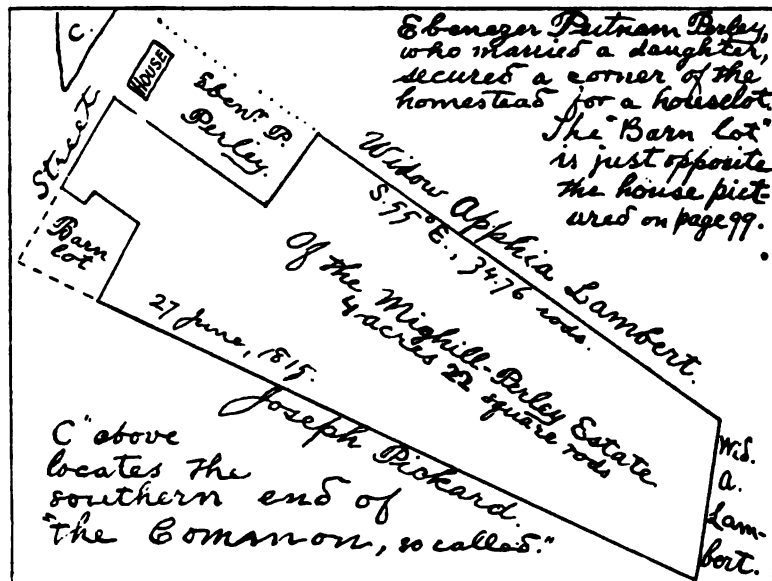 C.
Ebenezer Putnam Perley,
who married a daughter,
secured a corner of the
homestead for a houselot.
The "Barn lot"
is just opposite
the house pict-
ured on page 99.
HOUSE
Eben.r P.
Perley.
Street
Barn
lot
Widow Apphia Lambert.
S. 55° E., 34.76 rods.
Of the Mighill-Perley Estate
4 acres 22 square rods
27 June, 1815.
Joseph Pickard.
Wid.
A.
Lam-
bert.
C" above
locates the
southern end of
"the Common, so called."